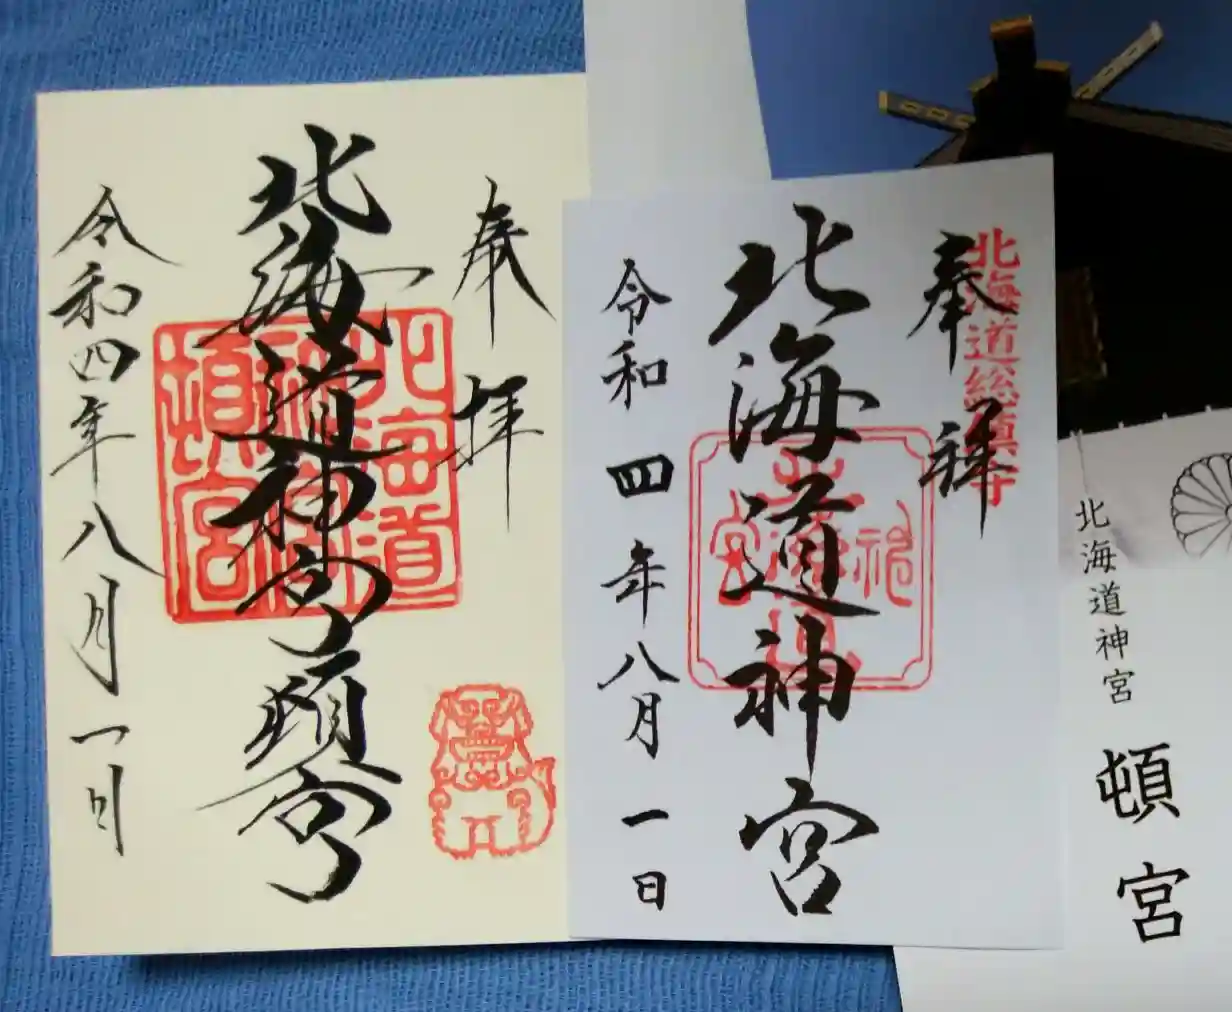 奉拝
北海道神宮頓宮
北海道
神宮
頓宮
令和四年八月一日
北海道総鎮守
奉拝
北海道神宮
令和四年八月一日
北海道神宮
頓宮